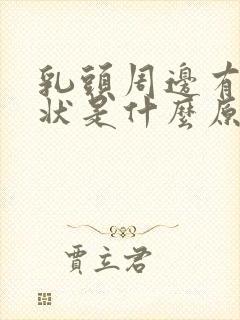 乳頭周邊有
狀是什麼原
賈立君